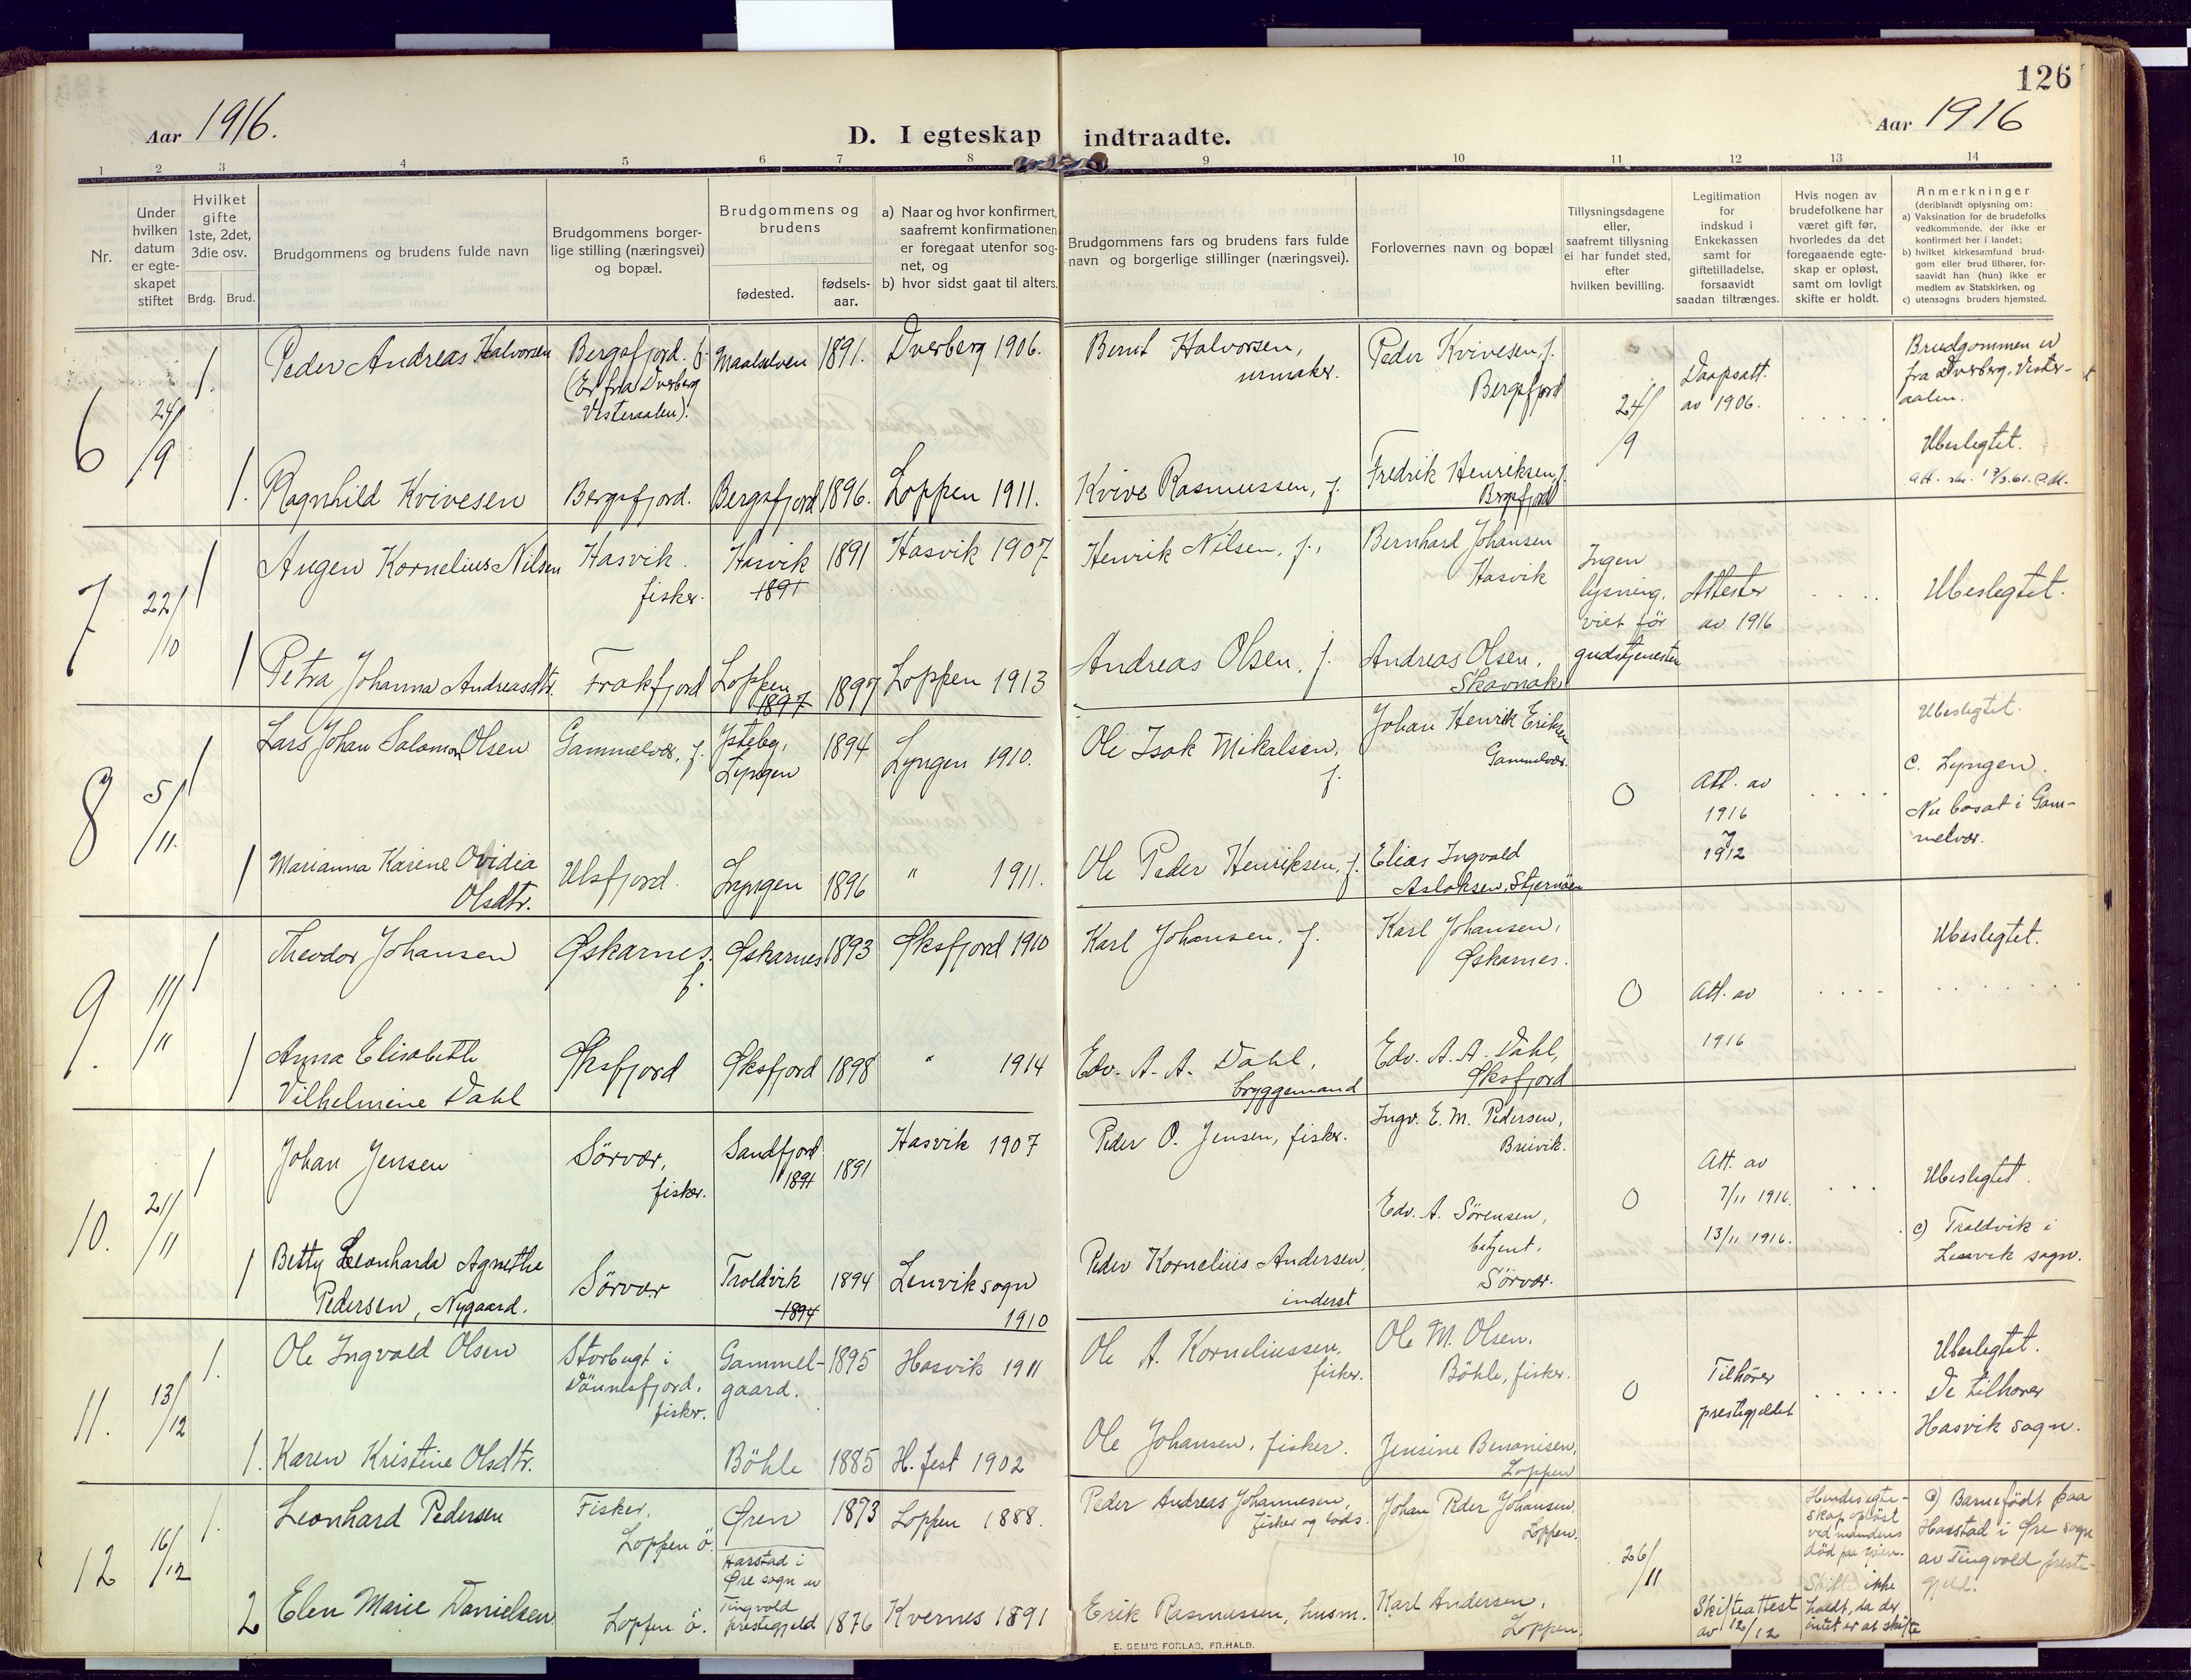 126
Aar 1916.
D. I egteskap indtraadte.
Aar 1916
1 2 3 4 5 6 7 8 9 10 11 12 13 14
Nr.
Under hvilken datum er egte-skapet stiftet
Hvilket gifte 1ste, 2det, 3die osv.
Brdg. Brud.
Brudgommens og brudens fulde navn
Brudgommens borger-lige stilling (næringsvei) og bopæl.
Brudgommens og brudens
fødested.
fødsels-aar.
a) Naar og hvor konfirmert, saafremt konfirmationen er foregaat utenfor sog-net, og
b) hvor sidst gaat til alters.
Brudgommens fars og brudens fars fulde navn og borgerlige stillinger (næringsvei).
Forlovernes navn og bopæl
Tillysningsdagene eller, saafremt tillysning ei har fundet sted, efter hvilken bevilling.
Legitimation for indskud i Enkekassen samt for giftetilladelse, forsaavidt saadan tiltrænges.
Hvis nogen av brudefolkene har været gift før, hvorledes da det foregaaende egte-skap er opløst, samt om lovligt skifte er holdt.
Anmerkninger
(deriblandt oplysning om:
a) Vaksination for de brudefolks vedkommende, der ikke er konfirmert her i landet;
b) hvilket kirkesamfund brud-gom eller brud tilhører, for-saavidt han (hun) ikke er medlem av Statskirken, og
c) utensogns bruders hjemsted.
6 24/9 1. Peder Andreas Halvorsen
Bergsfjord. f. (Er fra Dverberg Vesteraalen).
Maalselven 1891. Dverberg 1906.
Bernt Halvorsen, urmaker.
Peder Kvivesen, f. Bergsfjord
24/9
Daapsatt. av 1906.
Brudgommen er fra Dverberg. Vester-aalen.
Ubeslegtet.
1. Ragnhild Kvivesen Bergsfjord. Bergsfjord 1896. Loppen 1911.
Kvive Rasmussen, f. Fredrik Henriksen, f. Bergsfjord
7 22/10 1 Augen Kornelius Nilsen Hasvik. fisker. Hasvik 1891 1891 Hasvik 1907
Henrik Nilsen, f., Bernhard Johansen Hasvik
Ingen lysning, viet før gudstjenesten
Attester av 1916
Ubeslegtet.
1 Petra Johanna Andreasdtr. Frakfjord Loppen 1897 1897 Loppen 1913
Andreas Olsen, f. Andreas Olsen, Skavnak
8 5/11. 1 Lars Johan Salomon Olsen Gammelvær, f. Lyngen 1894 Lyngen 1910.
Ole Isak Mikalsen, f. Johan Henrik Eriksen Gammelvær.
O Att. av 1916 7 1912
Ubeslegtet.
c. Lyngen.
Nu bosat i Gam-melvær.
1 Marianna Karene Ovidia Olsdtr. Ulsfjord. Lyngen 1896 " 1911.
Ole Peder Henriksen, f. Elias Ingvald Aslaksen, Stjernøen
9. 11/11 1 Theodor Johansen Øskarnes. f. Øskarnes 1893 Øksfjord 1910
Karl Johansen, f. Karl Johansen, Øskarnes.
O Att. av 1916
Ubeslegtet.
1 Anna Elisabeth Vilhelmine Dahl Øksfjord Øksfjord 1898 " 1914
Edv. A. A. Dahl, bryggemand Edv. A. A. Dahl, Øksfjord
10. 21/11 1 Johan Jensen Sörvær, fisker. Sandfjord 1891 1891 Hasvik 1907
Peder O. Jensen, fisker. Ingv. E. M. Pedersen, Breivik.
O Att. av 7/11 1916. 13/11 1916.
Ubeslegtet.
c) Troldvik i Lenvik sogn.
1 Betty Leonharda Agnethe Pedersen, Nygaard. Sörvær Troldvik 1894 1894 Lenvik sogn 1910
Peder Kornelius Andersen, inderst Edv. A. Sörensen, betjent, Sörvær.
11. 13/12 1. Ole Ingvald Olsen Storbugt i Dönnesfjord, fisker. Gammel-gaard. 1895 Hasvik 1911
Ole A. Korneliussen, fisker. Ole M. Olsen, Böhle, fisker.
O Tilhörer prestegjeldet
Ubeslegtet.
De tilhører Hasvik sogn.
1. Karen Kristine Olsdtr. Böhle 1885 H.fest 1902
Ole Johansen, fisker. Jensine Benonisen, Loppen
12 16/12 1. Leonhard Pedersen Fisker, Loppen ö. Øren 1873 Loppen 1888.
Peder Andreas Johannesen, fisker og lods. Johan Peder Johansen, Loppen.
26/11
Skifteattest av 12/12
Hendes egte-skap oplöst ved mandens död paa sjöen. Skifte ikke holdt, da der intet er at skifte
c) Barnefödt paa Harstad i Øre sogn av Tingvold preste-gjeld.
2 Elen Marie Danielsen Loppen ö. Harstad i Øre sogn av Tingvold prestegjeld 1876 Kvernes 1891
Erik Rasmussen, husm. Karl Andersen, Loppen.
E. SEM'S FORLAG, FR.HALD.